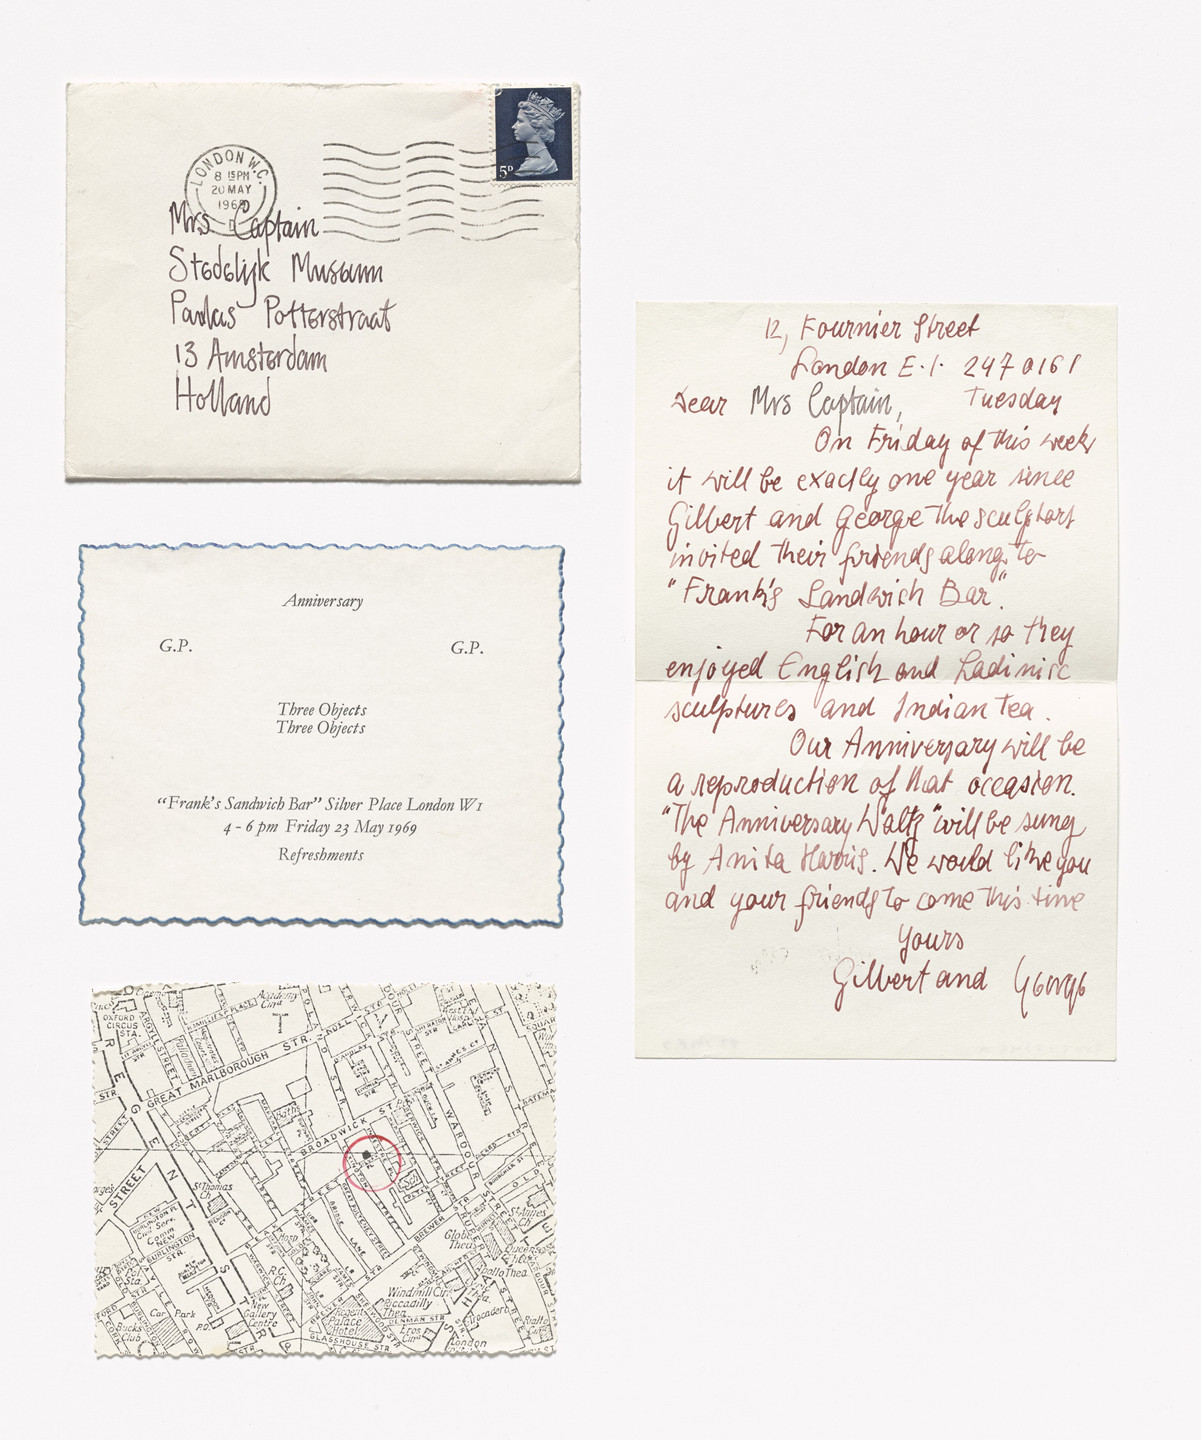 LONDON W.C.
8 15 PM
20 MAY
1969
D
5D
Mrs Captain
Stedelijk Museum
Paulus Potterstraat
13 Amsterdam
Holland
Anniversary
G.P. G.P.
Three Objects
Three Objects
“Frank's Sandwich Bar” Silver Place London W1
4 - 6 pm Friday 23 May 1969
Refreshments
12, Fournier Street
London E.1. 247 0161
Dear Mrs Captain, Tuesday
On Friday of this week
it will be exactly one year since
Gilbert and George the sculptors
invited their friends along to
"Frank's Sandwich Bar".
For an hour or so they
enjoyed English and Ladinisc
sculptures and Indian Tea.
Our Anniversary will be
a reproduction of that occasion.
"The Anniversary Waltz" will be sung
by Anita Harris. We would like you
and your friends to come this time
Yours
Gilbert and George
Academy
Cinᵃ
OXFORD
CIRCUS
STA.
ARGYLL STREET
GREAT MARLBOROUGH STR.
BROADWICK STR.
WARDOUR
STREET
St Thomas
Ch
BURLINGTON
STR.
BREWER STR.
Globe
Thea.
R.C.
Ch
Car Park
P.O.
New
Gallery
Centre
Bucks
Club
Regent
Palace
Hotel
GLASSHOUSE STR
Windmill
Piccadilly
Thea.
DENMAN STR
Eros
Cinᵃ
London